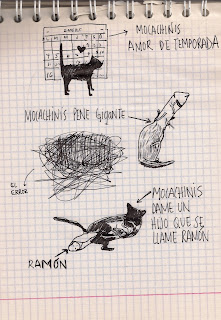 ENERO
MOLACHINIS
AMOR DE TEMPORADA
MOLACHINIS PENE GIGANTE
EL
ERROR
MOLACHINIS
DAME UN
HIJO QUE SE
LLAME RAMÓN
RAMÓN